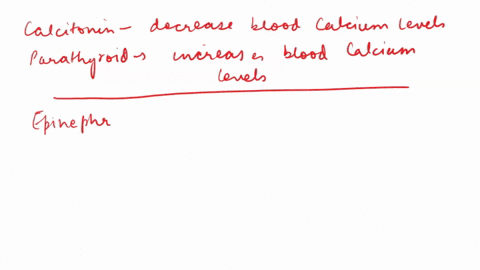 Calcitonin - decrease blood Calcium levels
Parathyroid → increases blood Calcium
levels
Epinephr